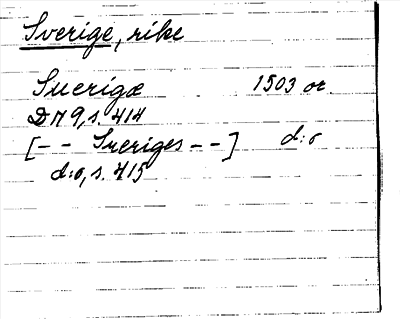 Sverige, rike
Suerigæ 1503 or.
DN 9, s. 414
[- - Sveriges - -] d:o
d:o, s. 415